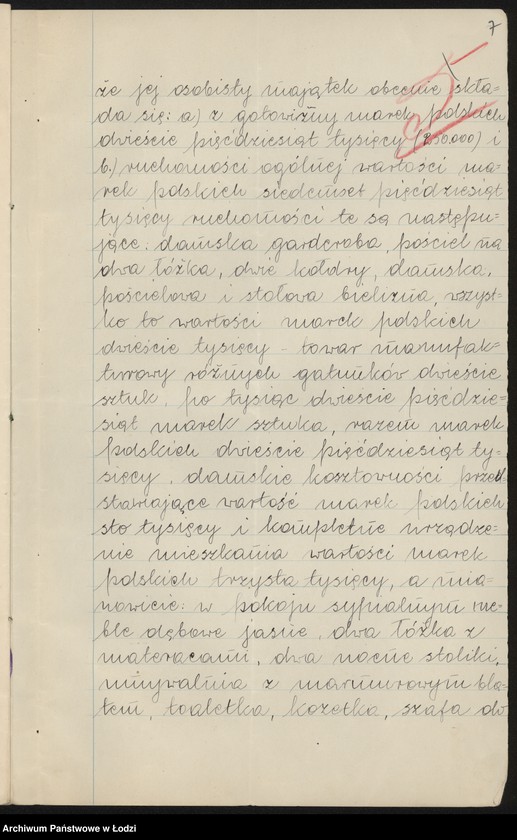 7
że jej osobisty majątek obecnie skła=
da się: a) z gotowizny marek polskich
dwieście pięćdziesiąt tysięcy (250.000) i
b.) ruchomości ogólnej wartości ma=
rek polskich siedemset pięćdziesiąt
tysięcy ruchomości te są następu=
jące: damska garderoba, pościel na
dwa łóżka, dwie kołdry, damska,
pościelowa i stołowa bielizna, wszyst=
ko to wartości marek polskich
dwieście tysięcy – towar manufak=
turowy różnych gatunków dwieście
sztuk, po tysiąc dwieście pięćdzie=
siąt marek sztuka, razem marek
polskich dwieście pięćdziesiąt ty=
sięcy, damskie kosztowności przed=
stawiające wartość marek polskich
sto tysięcy i kompletne urządze=
nie mieszkania wartości marek
polskich trzysta tysięcy, a mia=
nowicie: w pokoju sypialnym me=
ble dębowe jasne, dwa łóżka z
materacami, dwa nocne stoliki,
umywalnia z marmurowym bla=
tem, toaletka, kozetka, szafa do
Archiwum Państwowe w Łodzi